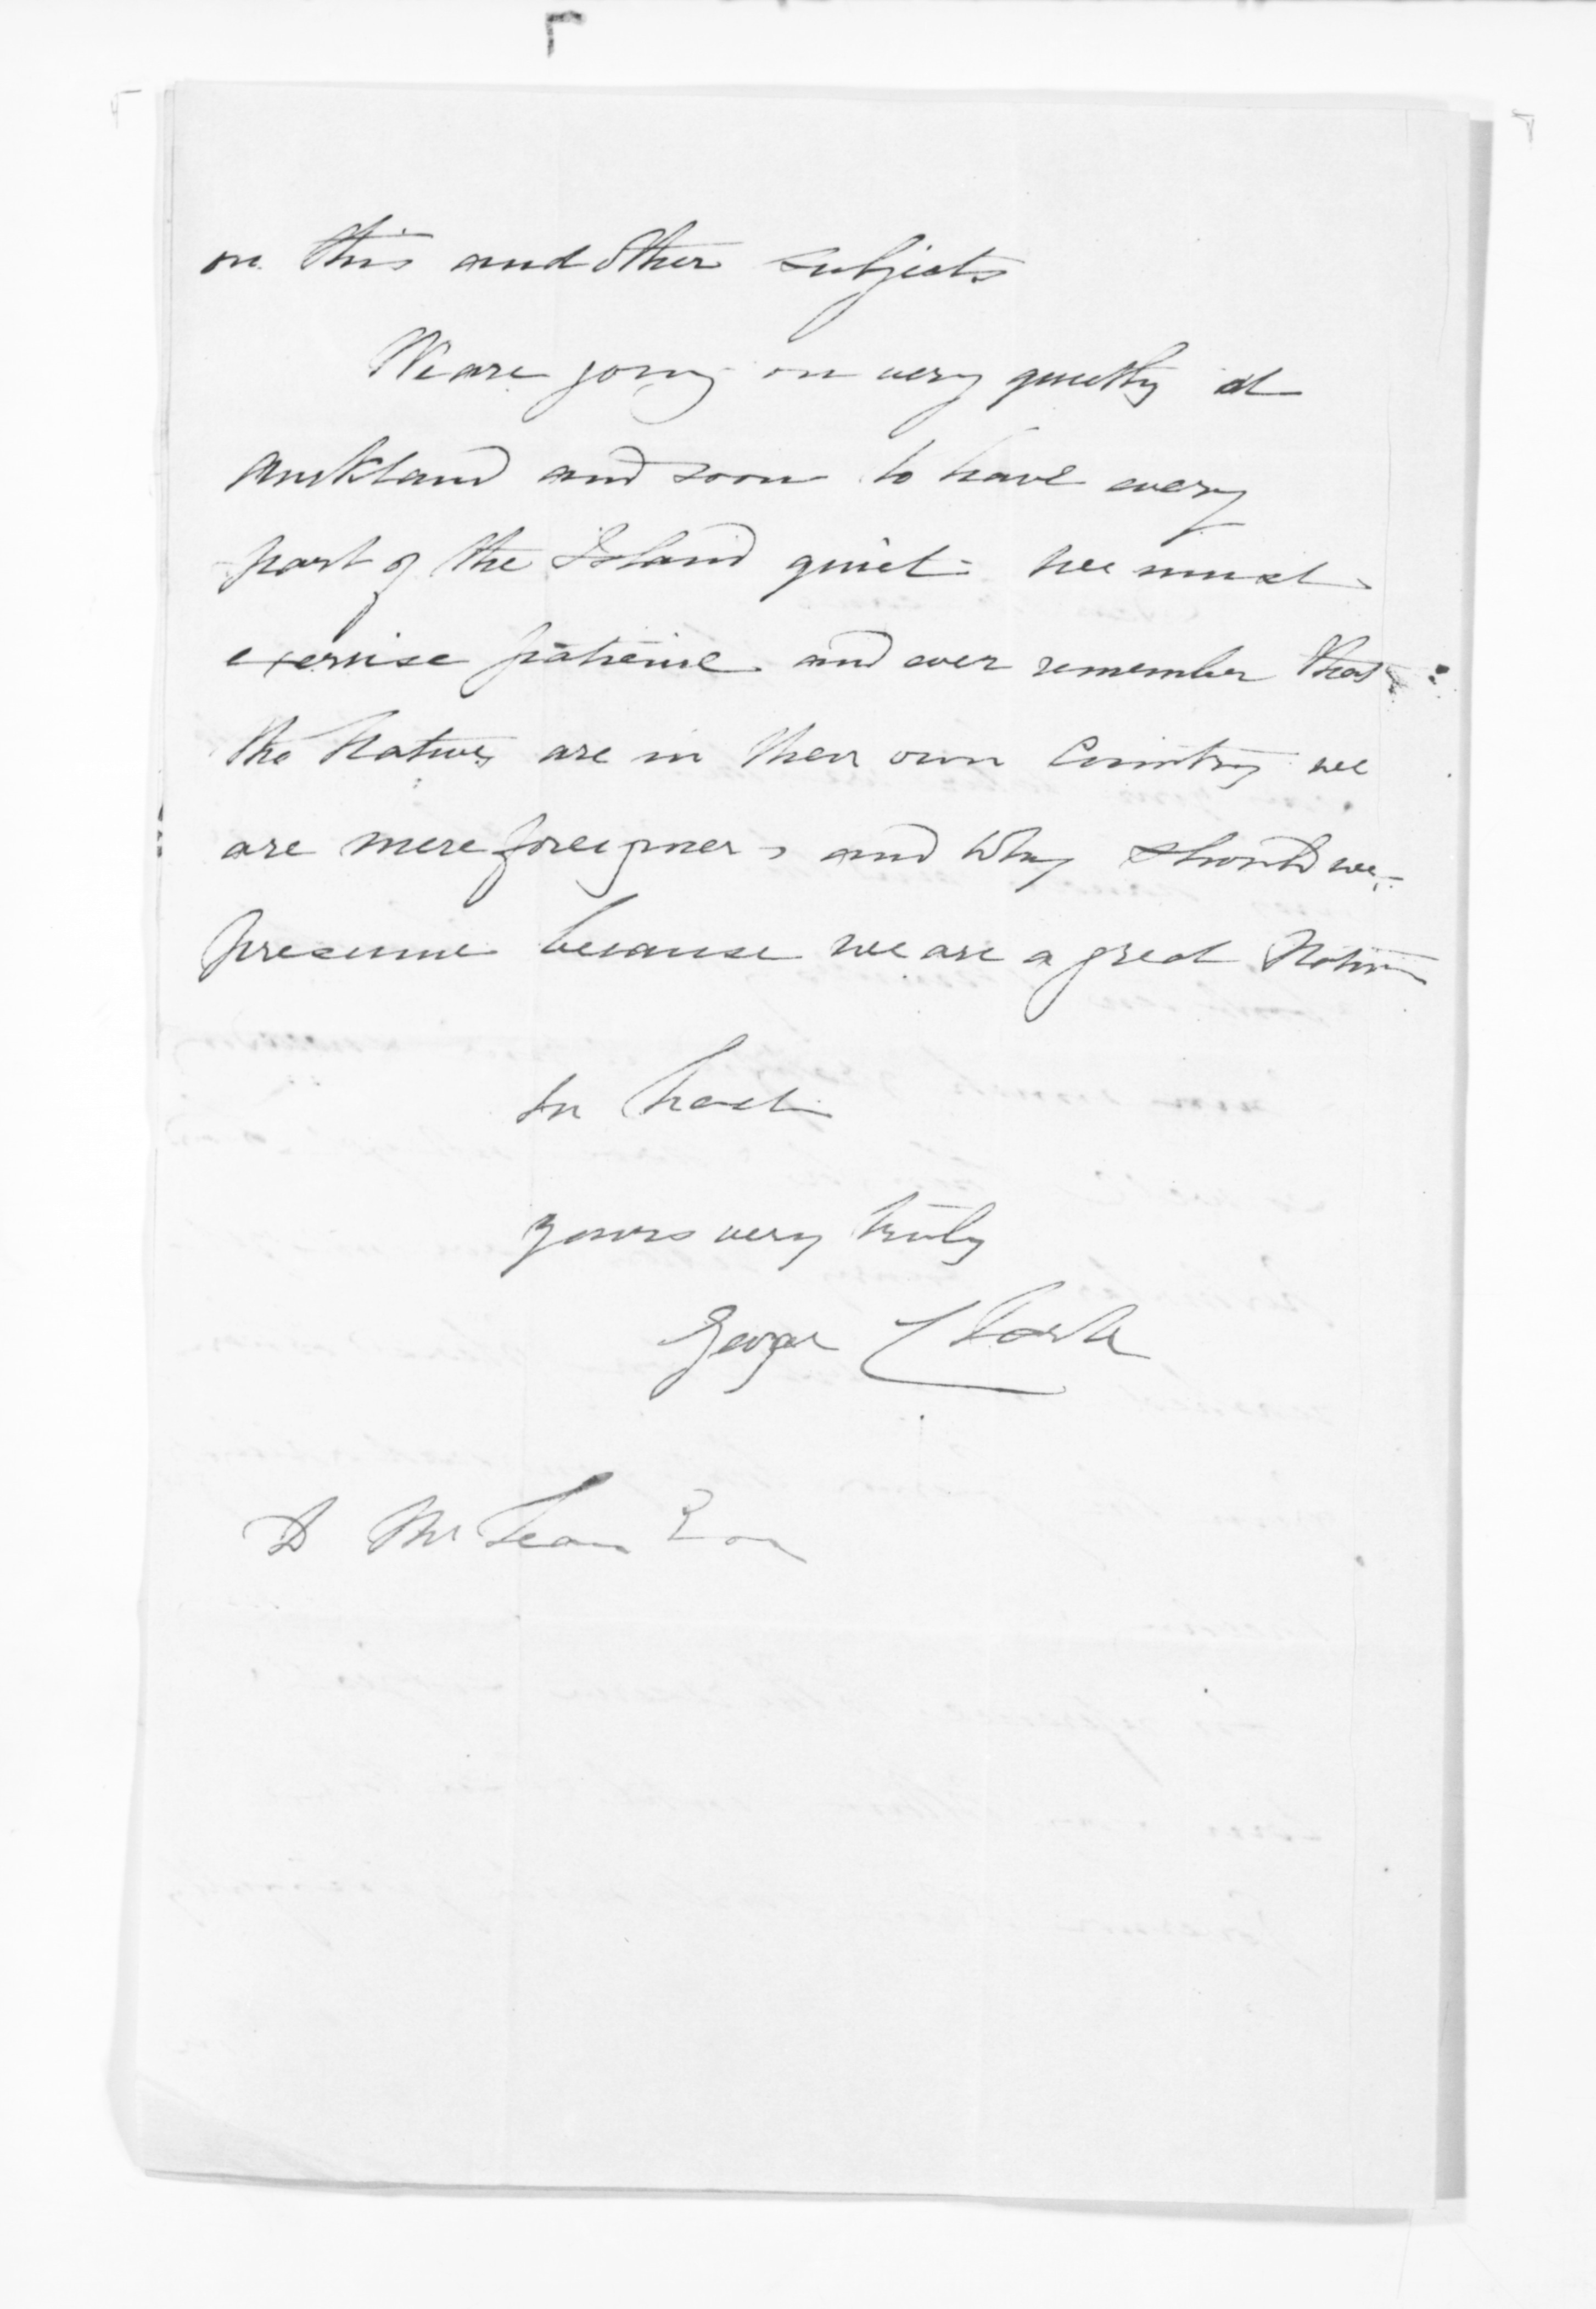 on this and other subjects
We are going on very quietly at
Auckland and soon to have every
part of the Island quiet. we must
exercise patience and ever remember that
the Natives are in their own Country we
are mere foreigners and why should we
presume because we are a great Nation
In haste
yours very truly
George Clarke
D McLean Esq